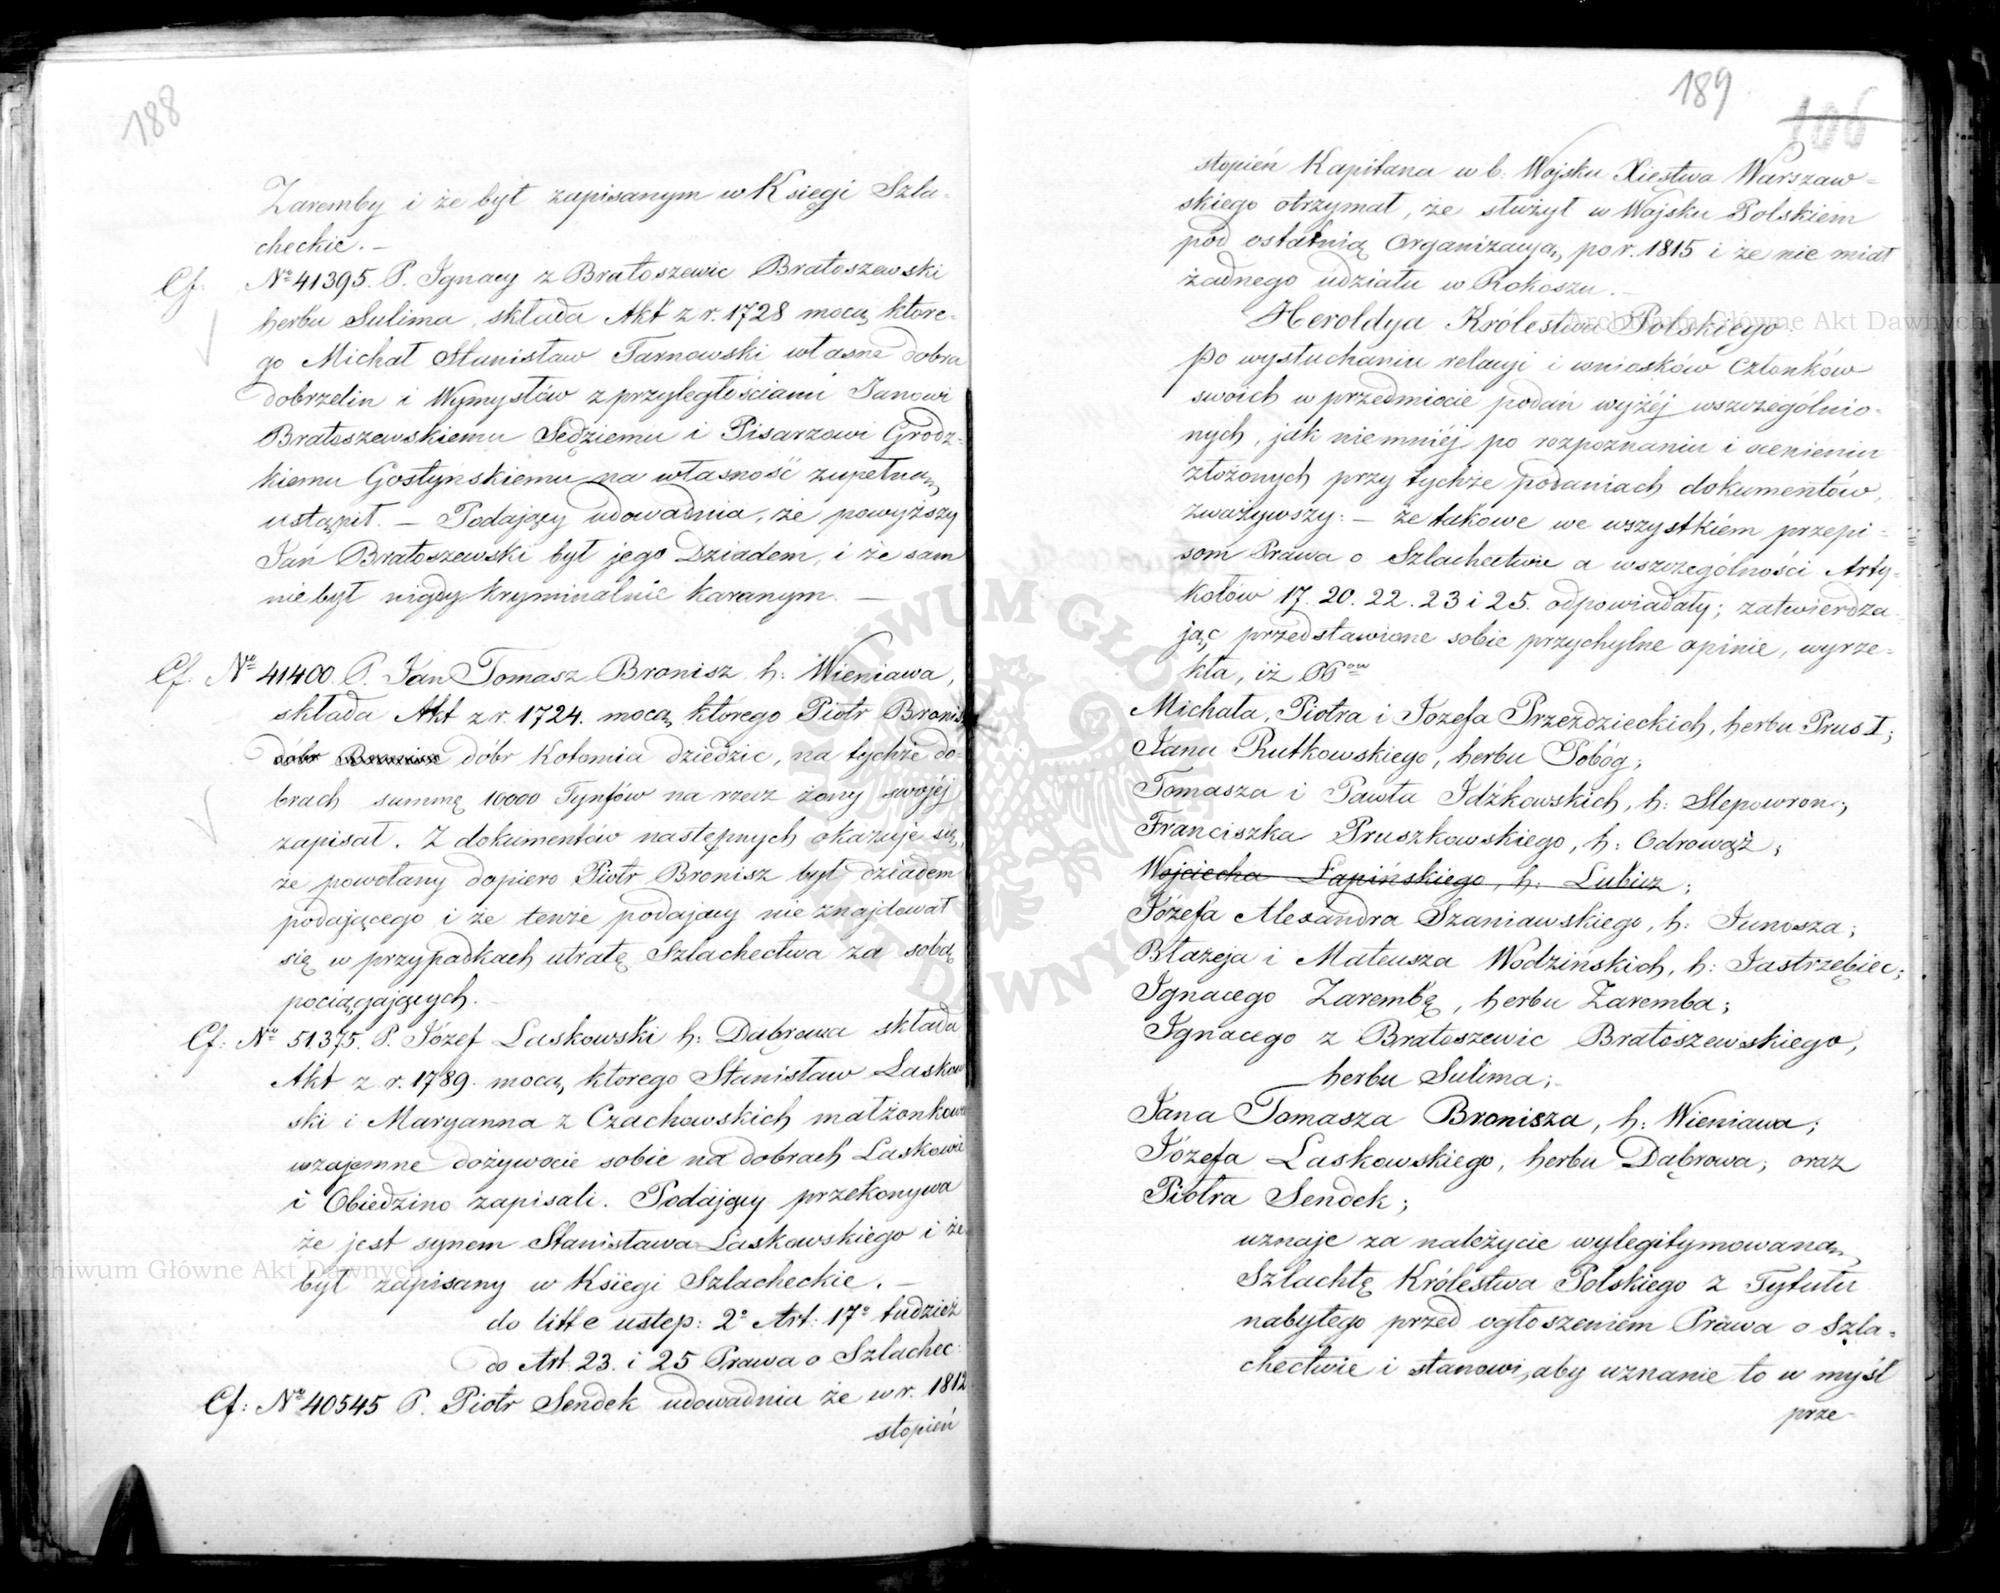 188
Zaremby i że był zapisanym w Księgi Szla-
checkie. –
Cf. No 41395. P. Ignacy z Bratoszewic Bratoszewski
herbu Sulima, składa Akt z r. 1728 mocą które-
go Michał Stanisław Tarnowski własne dobra
dobrzelin i Wymysłów z przyległościami Janowi
Bratoszewskiemu Sędziemu i Pisarzowi Grodz-
kiemu Gostyńskiemu na własność zupełną
ustąpił. – Podający udowadnia, że powyższy
Jan Bratoszewski był jego Dziadem, i że sam
nie był nigdy kryminalnie karanym. –
Cf. No 41400. P. Jan Tomasz Bronisz h: Wieniawa,
składa Akt z r. 1724. mocą którego Piotr Bronisz
dóbr dóbr Kołomia dziedzic, na tychże do-
brach summę 10000 Tynfów na rzecz żony swojéj
zapisał. Z dokumentów następnych okazuje się,
że powołany dopiero Piotr Bronisz był dziadem
podającego i że tenże podający nie znajdował
się w przypadkach utratę Szlachectwa za sobą
pociągających. –
Cf: No 51375. P. Józef Laskowski h: Dąbrowa składa
Akt z r. 1789. mocą którego Stanisław Laskow
ski i Maryanna z Czachowskich małżonkowie
wzajemne dożywocie sobie na dobrach Laskowie
i Obiedzino zapisali. Podający przekonywa
że jest synem Stanisława Laskowskiego i że
był zapisany w Księgi Szlacheckie. –
do litt e ustęp: 2o Art: 17o tudzież
do Art. 23. i 25 Prawa o Szlachec:
Cf: No 40545 P. Piotr Sendek udowadnia że w r. 1812
stopień
189
106
stopień Kapitana w b: Wojsku Xięstwa Warszaw-
skiego otrzymał, że służył w Wojsku Polskiem
pod ostatnią Organizacyą, po r. 1815 i że nie miał
żadnego udziału w Rokoszu. –
Heroldya Królestwa Polskiego.
Po wysłuchaniu relacyi i wniosków Członków
swoich w przedmiocie podań wyżéj wszczególnio-
nych, jak niemniéj po rozpoznaniu i ocenieniu
złożonych przy tychże podaniach dokumentów,
zważywszy: – że takowe we wszystkiém przepi-
som Prawa o Szlachectwie a wszczególności Arty-
kułów 17. 20. 22. 23 i 25. odpowiadały; zatwierdza-
jąc przedstawione sobie przychylne opinie, wyrze-
kła, iż PPów
Michała, Piotra i Józefa Przezdzieckich, herbu Prus I;
Jana Rutkowskiego, herbu Pobóg;
Tomasza i Pawła Idźkowskich, h: Slepowron;
Franciszka Pruszkowskiego, h: Odrowąż;
Wojciecha Łapińskiego, h: Lubicz;
Józefa Alexandra Szaniawskiego, h: Junosza;
Błażeja i Mateusza Wodzińskich, h: Jastrzębiec;
Ignacego Zarembę, herbu Zaremba;
Ignacego z Bratoszewic Bratoszewskiego,
herbu Sulima;
Jana Tomasza Bronisza, h: Wieniawa;
Józefa Laskowskiego, herbu Dąbrowa; oraz
Piotra Sendek;
uznaje za należycie wylegitymowaną
Szlachtę Królestwa Polskiego z Tytułu
nabytego przed ogłoszeniem Prawa o Szla-
chectwie i stanowi, aby uznanie to w myśl
prze-
Archiwum Główne Akt Dawnych
Archiwum Główne Akt Dawnych
ARCHIWUM GŁÓWNE AKT DAWNYCH